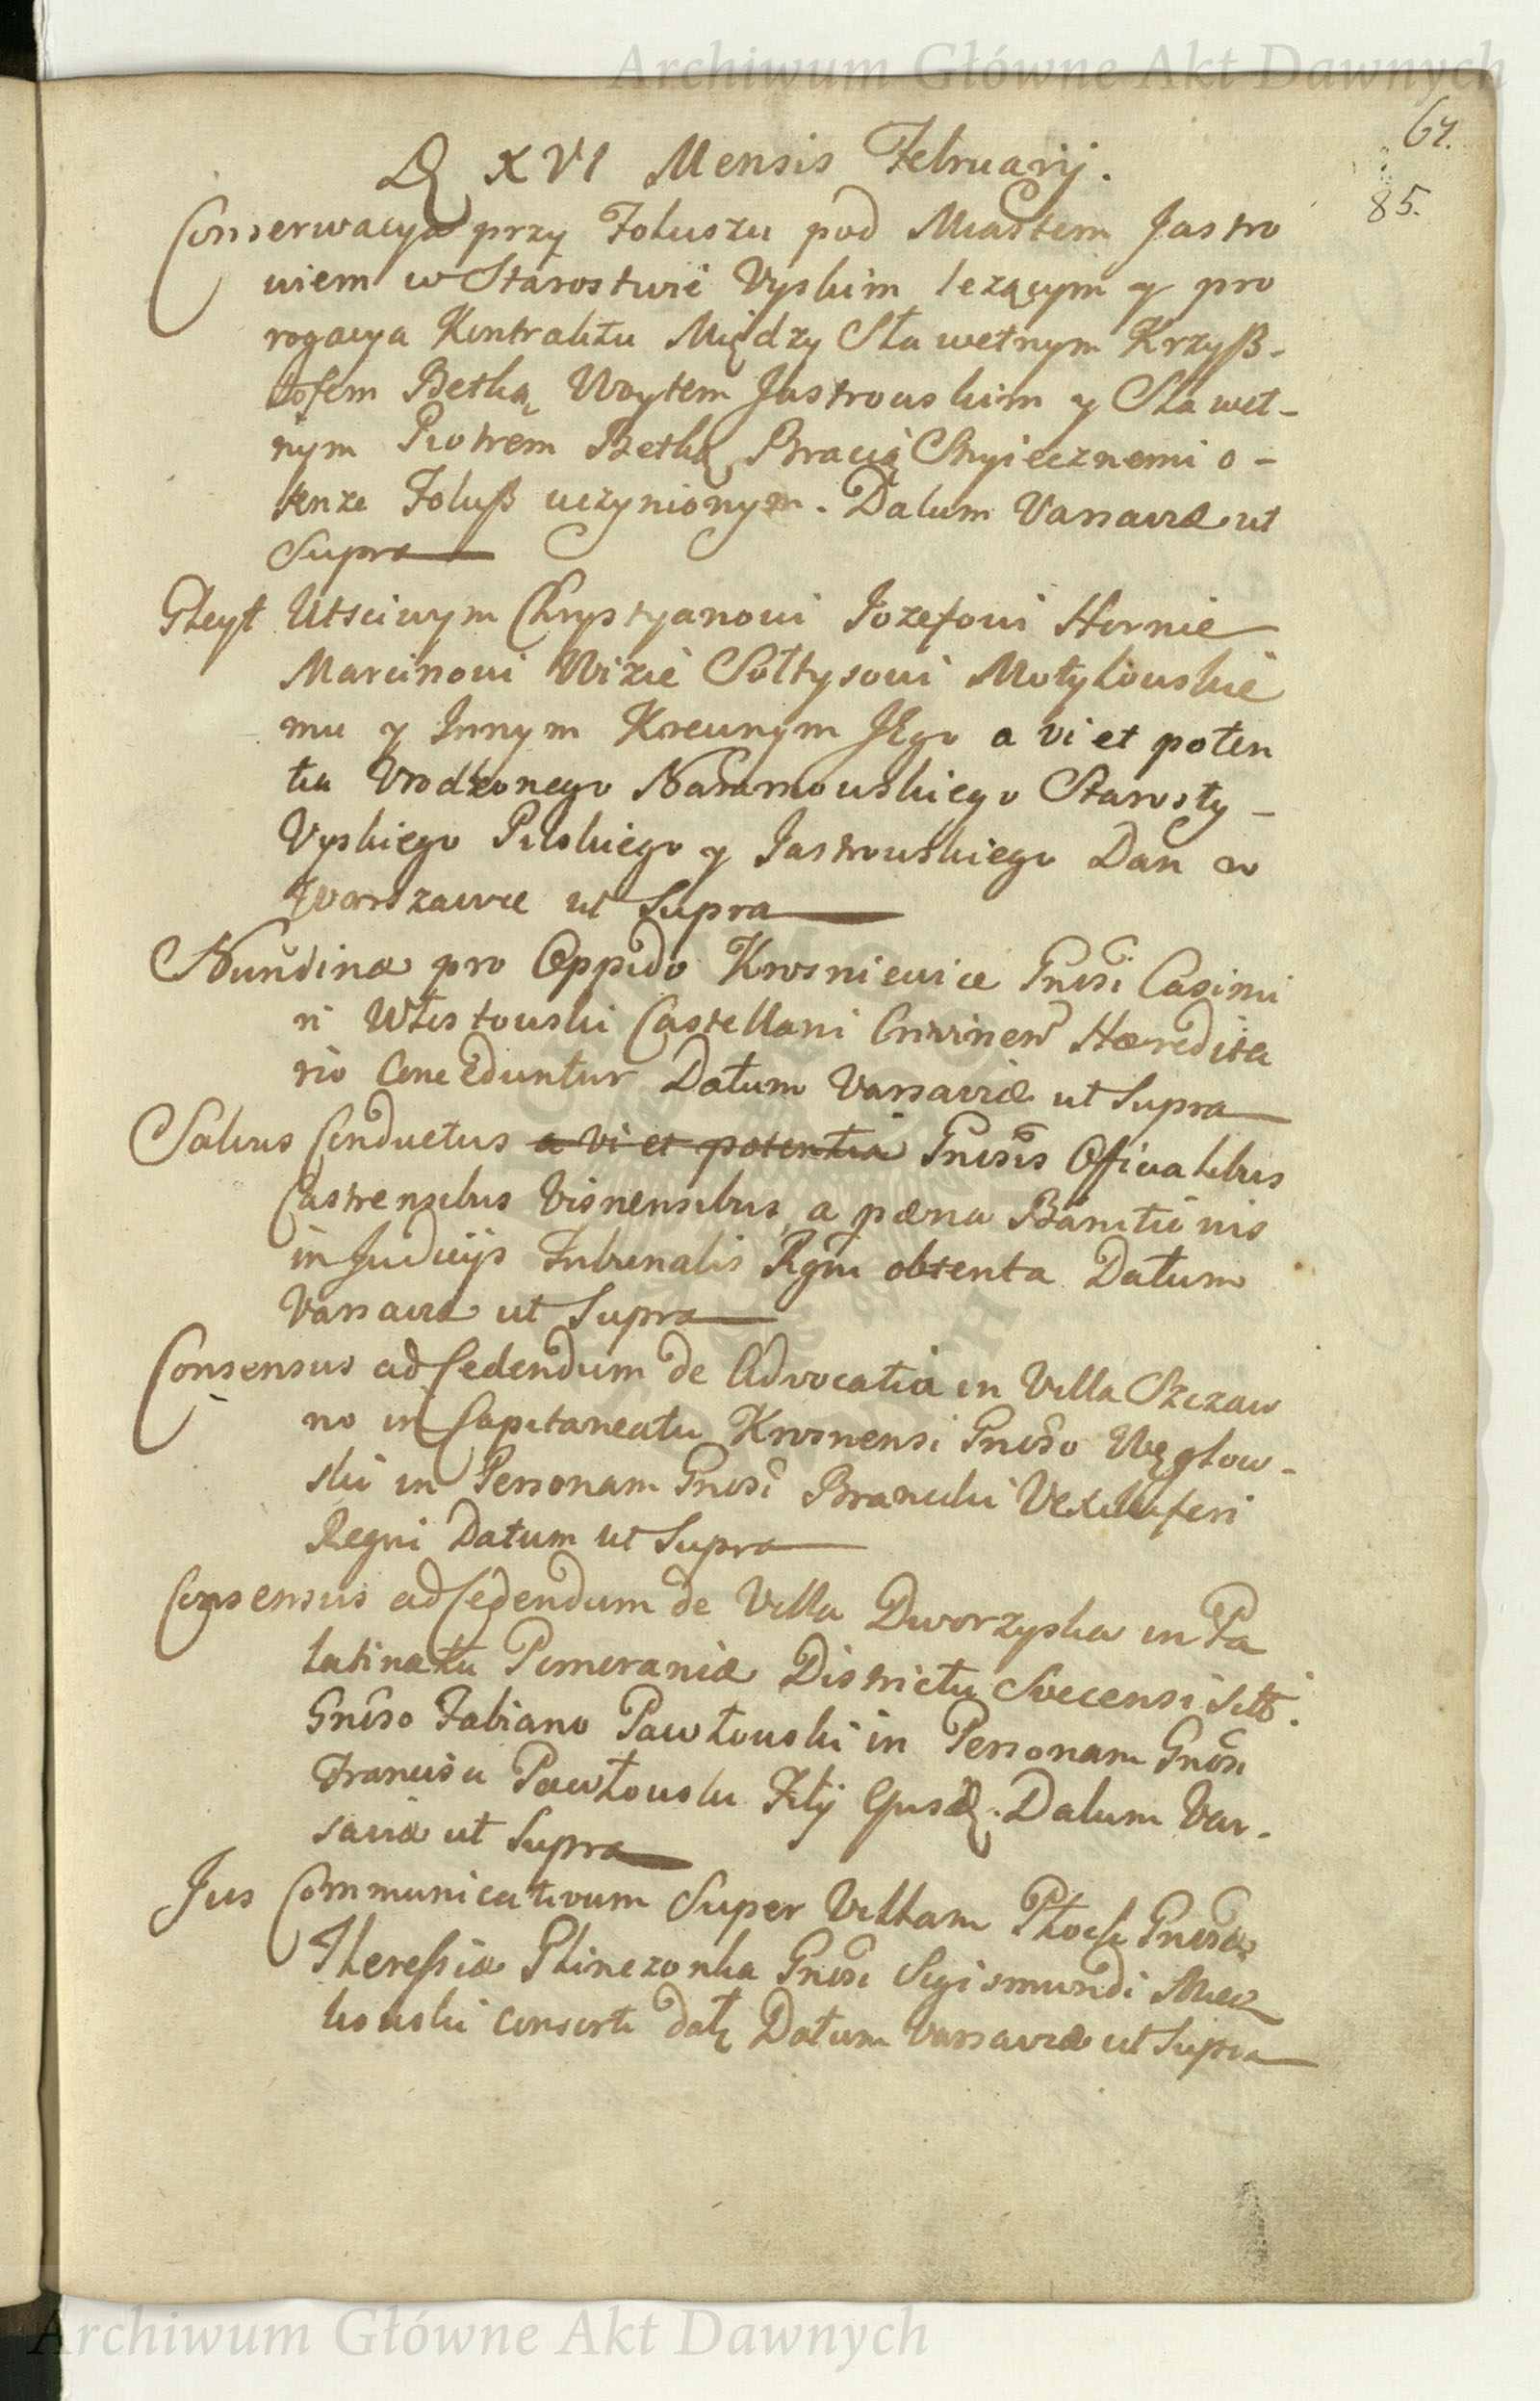 Archiwum Główne Akt Dawnych
67.
85.
D XVI Mensis Februarij.
Conserwacya przy Foluszu pod Miastem Jastro
wiem w Starostwie Vyskim lezącym y pro
rogacya Kontraktu Między Sławetnym Krzyß-
tofem Betką Woytem Jastrowskim y Sławet-
nym Piotrem Betką Bracią Stryiecznemi o-
tenze Foluß uczynionym. Datum Varsaviæ ut
Supra
Gleyt Utsciwym Chrystyanowi Jozefowi Hernie
Marcinowi Wizie Sołtysowi Motylewskie
mu y Innym Krewnym JEgo a vi et poten
tia Vrodzonego Naramowskiego Starosty-
Vyskiego Pilskiego y Jastrowskiego Dan w
Warszawie ut Supra
Nundinæ pro Oppido Krosniewice Gnosi Casimi
ri Wlostowski Castellani Crivinen Hæredita
rio Conceduntur Datum Varsaviæ ut Supra
Salvus Conductus a vi et potentia Gnosis Officialibus
Castrensibus Visnensibus, a pæna Banitionis
in Judicijs Tribunalis Rgni obtenta Datum
Varsaviæ ut Supra
Consensus ad Cedendum de Advocatia in Villa Szczaw
no in Capitaneatu Krosnensi Gnoso Węglow-
ski in Personam Gnosi Branicki Vexilliferi
Regni Datum ut Supra
Consensus ad Cedendum de Villa Dworzyska in Pa
latinatu Pomeraniæ Districtu Svecensi
Gnoso Fabiano Pawłowski in Personam Gnosi
Francisci Pawłowski Filij Datum Var-
saviæ ut Supra
Jus Communicativum Super Villam Gnosæ
Theressiæ Glinczonka Gnosi Sigismundi
kowski consorti Datum Varsaviæ ut Supra
Archiwum Główne Akt Dawnych